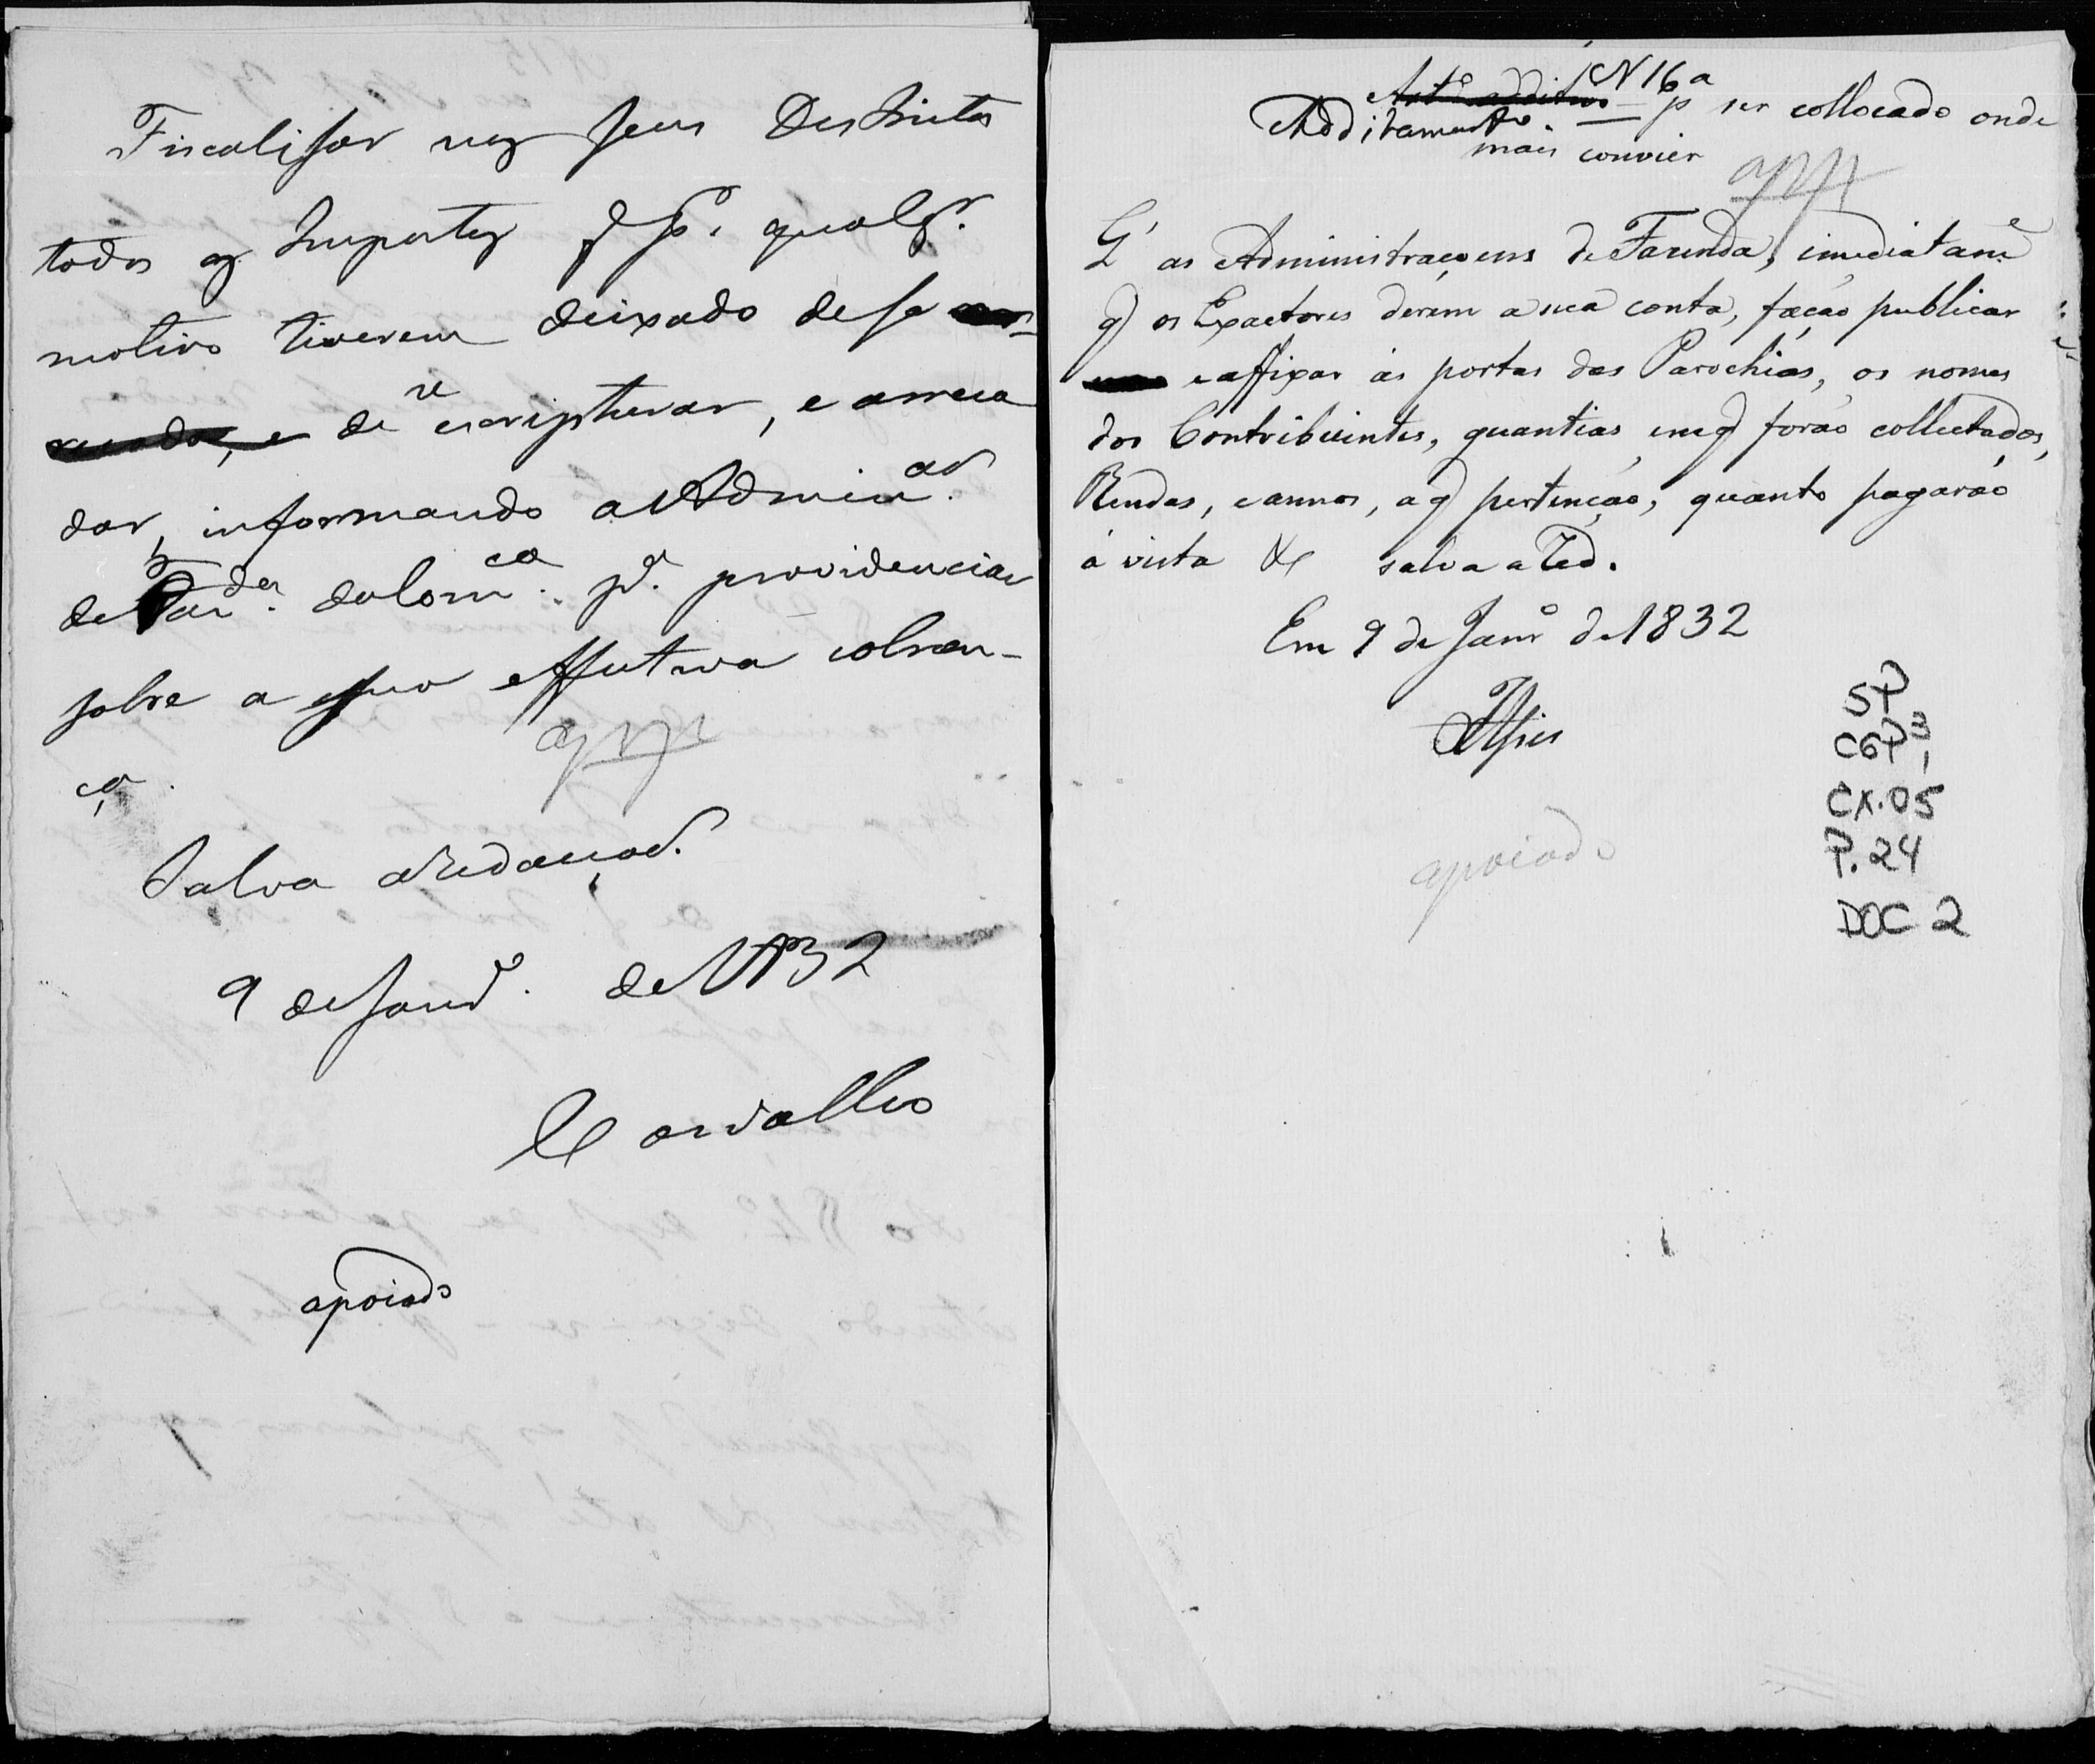 Fiscalisar nos seus Destrictos
todos os Impostos q̃ pr. qualqr.
motivo tiverem deixado de se
de escripturar, e arreca
dar, informando a Admin.am
de Fazda. da Com.ca pa. providenciar
sobre a sua effectiva cobran-
ça.
apoi
Salva a Redacçaõ.
9 de Janro. de 1832
Carvalho
apoiado
N 16
Artº additivo pa ser collocado onde
Additamento.
mais convier
§ as Administraçoens de Fazenda, imediatame
q̃ os Exactores derem a sua conta, façaõ publicar
e affixar ás portas das Parochias, os nomes
dos Contribuintes, quantias em q̃ foraõ collectados,
Rendas, e annos, a q̃ pertençaõ, quanto pagaraõ
á vista & salva a Red.
Em 9 de Janrº de 1832
apoiado
SP
CGP3,
CX.05
P.24
DOC 2